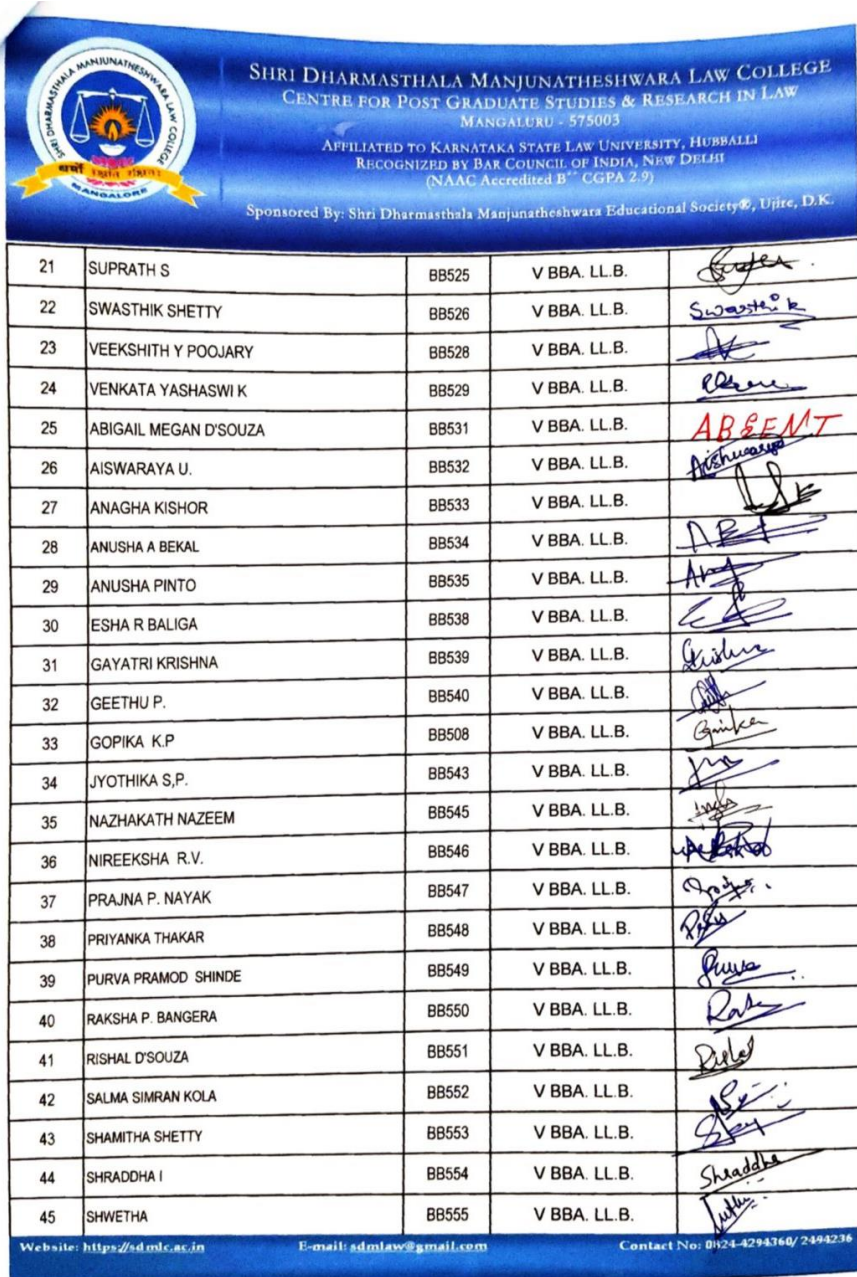 SHRI DHARMASTHALA MANJUNATHESHWARA LAW COLLEGE
MANGALORE
SHRI DHARMASTHALA MANJUNATHESHWARA LAW COLLEGE
CENTRE FOR POST GRADUATE STUDIES & RESEARCH IN LAW
MANGALURU - 575003
AFFILIATED TO KARNATAKA STATE LAW UNIVERSITY, HUBBALLI
RECOGNIZED BY BAR COUNCIL OF INDIA, NEW DELHI
(NAAC Accredited B++ CGPA 2.9)
Sponsored By: Shri Dharmasthala Manjunatheshwara Educational Society®, Ujire, D.K.
21 SUPRATH S BB525 V BBA. LL.B.
22 SWASTHIK SHETTY BB526 V BBA. LL.B. Swasthik
23 VEEKSHITH Y POOJARY BB528 V BBA. LL.B.
24 VENKATA YASHASWI K BB529 V BBA. LL.B.
25 ABIGAIL MEGAN D'SOUZA BB531 V BBA. LL.B. ABSENT
26 AISWARAYA U. BB532 V BBA. LL.B. Aishwarya
27 ANAGHA KISHOR BB533 V BBA. LL.B.
28 ANUSHA A BEKAL BB534 V BBA. LL.B.
29 ANUSHA PINTO BB535 V BBA. LL.B.
30 ESHA R BALIGA BB538 V BBA. LL.B.
31 GAYATRI KRISHNA BB539 V BBA. LL.B.
32 GEETHU P. BB540 V BBA. LL.B.
33 GOPIKA K.P BB508 V BBA. LL.B.
34 JYOTHIKA S,P. BB543 V BBA. LL.B.
35 NAZHAKATH NAZEEM BB545 V BBA. LL.B.
36 NIREEKSHA R.V. BB546 V BBA. LL.B.
37 PRAJNA P. NAYAK BB547 V BBA. LL.B.
38 PRIYANKA THAKAR BB548 V BBA. LL.B.
39 PURVA PRAMOD SHINDE BB549 V BBA. LL.B.
40 RAKSHA P. BANGERA BB550 V BBA. LL.B.
41 RISHAL D'SOUZA BB551 V BBA. LL.B.
42 SALMA SIMRAN KOLA BB552 V BBA. LL.B.
43 SHAMITHA SHETTY BB553 V BBA. LL.B.
44 SHRADDHA I BB554 V BBA. LL.B. Shraddha
45 SHWETHA BB555 V BBA. LL.B.
Website: https://sdmlc.ac.in E-mail: sdmlaw@gmail.com Contact No: 0824-4294360/ 2494236